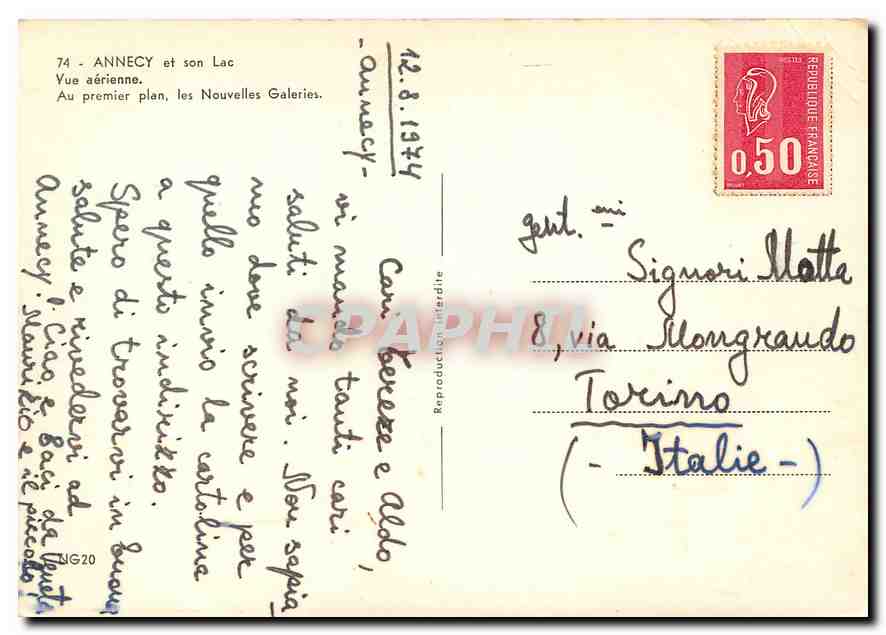 74 - ANNECY et son Lac
Vue aérienne.
Au premier plan, les Nouvelles Galeries.
12.8.1974
- Annecy -
Cari Tereze e Aldo,
vi mando tanti cari
saluti da noi. Non sapia-
mo dove scrivere e per
quello invio la cartolina
a questo indirizzo.
Spero di trovarvi in buona
salute e rivedervi ad
Annecy! Ciao, e Baci da
Maurizio e il piccolo
NG20
Reproduction interdite
REPUBLIQUE FRANÇAISE
POSTES
0,50
gent. mi
Signori Motta
8, via Mongrando
Torino
(- Italie -)
CPAPHIL